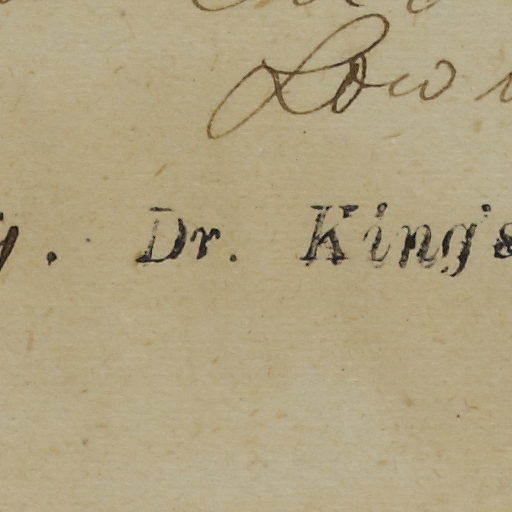 Low
y. Dr. King's